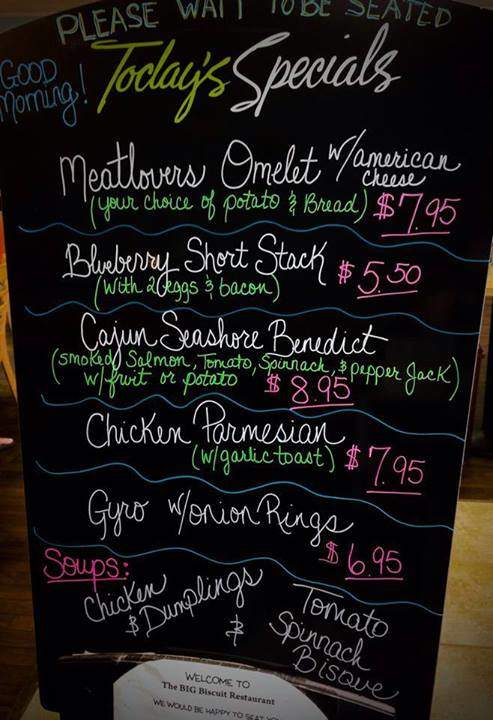 PLEASE WAIT TO BE SEATED
GOOD
Morning!
Today's Specials
Meatlovers Omelet w/american
cheese
(your choice of potato & Bread) $7.95
Blueberry Short Stack $5.50
(with 2 eggs & bacon)
Cajun Seashore Benedict
(smoked Salmon, Tomato, Spinnach, & pepper Jack)
w/fruit or potato $8.95
Chicken Parmesian
(w/garlic toast) $7.95
Gyro w/onion Rings
$6.95
Soups:
Chicken
& Dumplings
&
Tomato
Spinnach
Bisque
WELCOME TO
The BIG Biscuit Restaurant
WE WOULD BE HAPPY TO SEAT